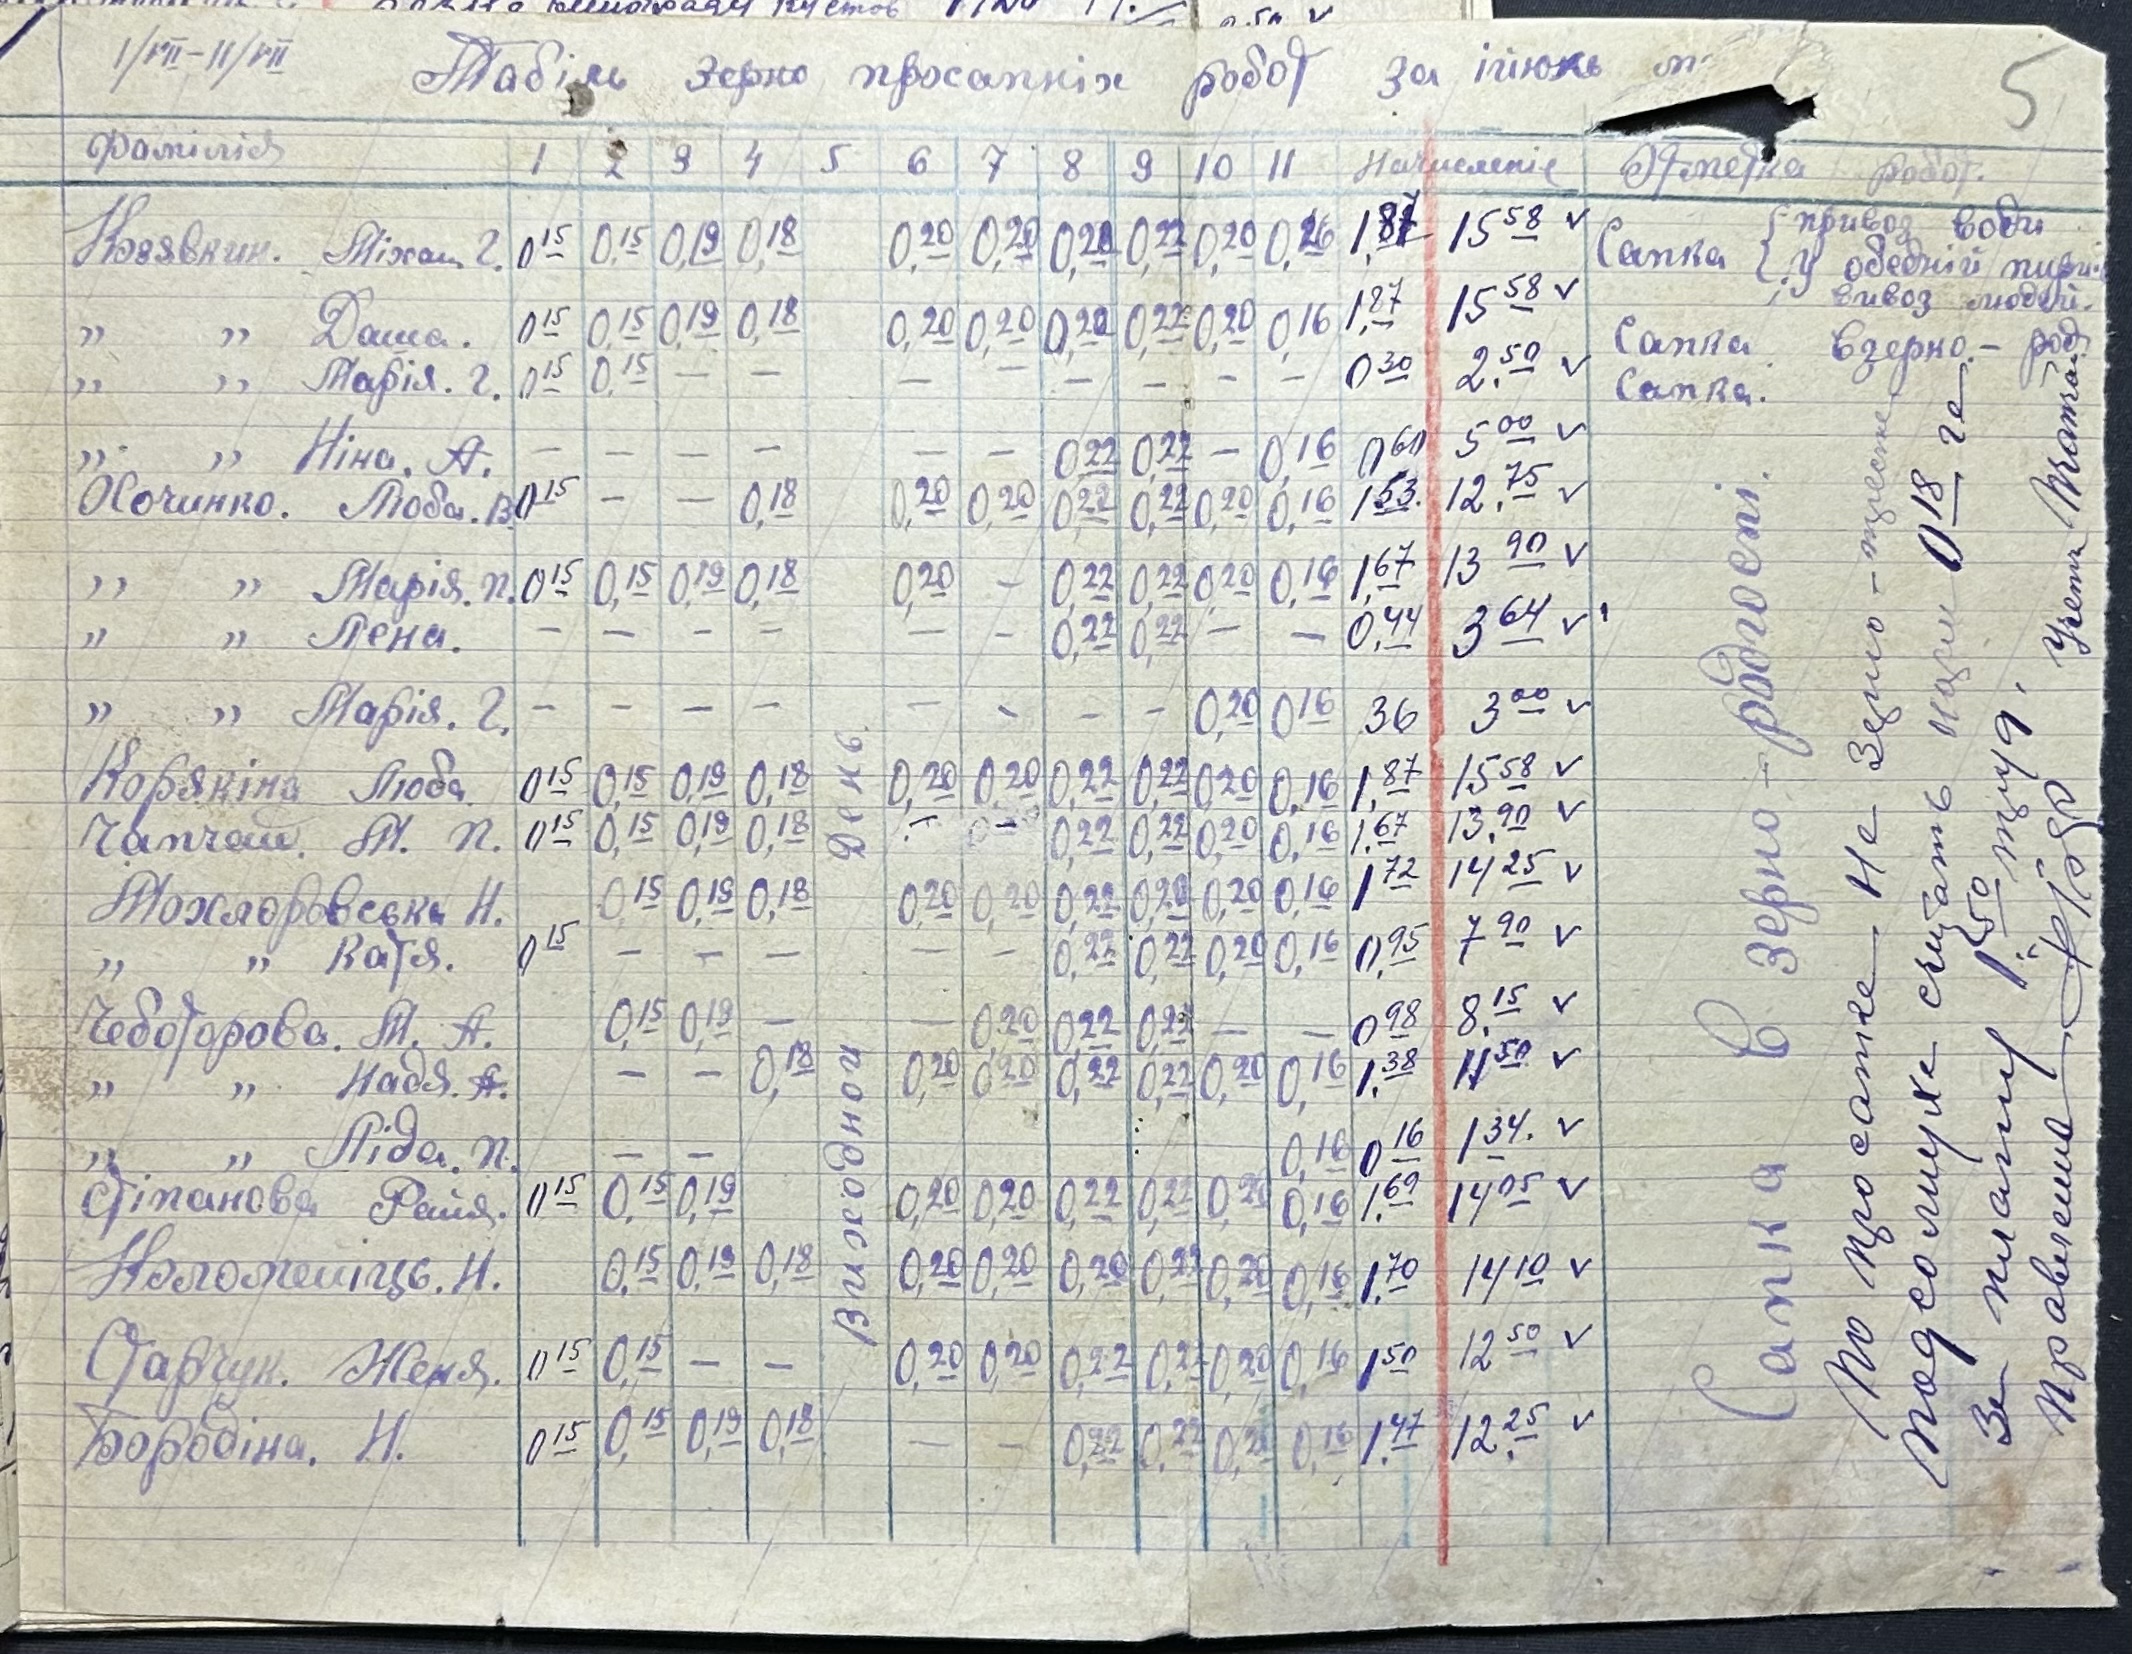 I/VII-II/VII
Табіль зерно просапніх робот за ійюнь м-
5
Фамілія 1 2 3 4 5 6 7 8 9 10 11 Начисленіє Отметка робот.
Козявкин. Міхаил Г. 0 15 0,15 0,19 0,18 0,20 0,20 0,20 0,22 0,20 0,26 1,87 15 58 v Сапка { привоз води
у обедній пирів
; вивоз людей.
„ „ Даша. 0 15 0,15 0,19 0,18 0,20 0,20 0,20 0,22 0,20 0,16 1,87 15 58 v Сапка взерно-род
„ „ Марія. Г. 0 15 0,15 — — — — — — — — 0 30 2.50 v Сапка.
„ „ Ніна. А. — — — — — — 0 22 0,22 — 0,16 0 60 5 00 v
Хочинко. Люба. В. 0 15 — — 0,18 0,20 0,20 0,22 0,22 0,20 0,16 1 53. 12.75 v
„ „ Марія. П. 0 15 0,15 0,19 0,18 0,20 — 0,22 0,22 0,20 0,16 1,67 13 90 v
„ „ Лена. — — — — — — 0,22 0,22 — — 0,44 3 64 v
„ „ Марія. Г. — — — — — — — — 0,20 0 16 36 3 00 v
Корякіна Люба 0 15 0,15 0,19 0,18 0,20 0,20 0,22 0,22 0,20 0,16 1,87 15 58 v
Чапчай. М. П. 0 15 0,15 0,19 0,18 — — 0,22 0,22 0,20 0,16 1,67 13.90 v
Мохляровська Н. 0,15 0,19 0,18 0,20 0,20 0,22 0,20 0,20 0,16 1 72 14 25 v
„ „ Катя. 0 15 — — — — — 0,22 0,22 0,20 0,16 0,95 7 90 v
Чеботорова. М. А. 0,15 0,19 — — 0,20 0,22 0,22 — — 0 98 8.15 v
„ „ Надя. А. — — 0,18 0,20 0,20 0,22 0,22 0,20 0,16 1.38 11 50 v
„ „ Ліда. П. — — 0,16 0 16 1 34. v
Стіпанова Раия. 0 15 0,15 0,19 0,20 0,20 0,22 0,22 0,20 0,16 1.69 14 05 v
Коломеиіць. Н. 0,15 0,19 0,18 0,20 0,20 0,20 0,22 0,20 0,16 1.70 14 10 v
Старчук. Женя. 0 15 0,15 — — 0,20 0,20 0,22 0,22 0,20 0,16 1 50 12 50 v
Бородіна. Н. 0 15 0,15 0,19 0,18 — — 0,22 0,22 0,20 0,16 1.47 12.25 v
Виходной День.
Сапка в зерно-родгоспі.
По просапке На Зерно-
подсолнухе считать 0 18 га
За платы 1.50
Правления